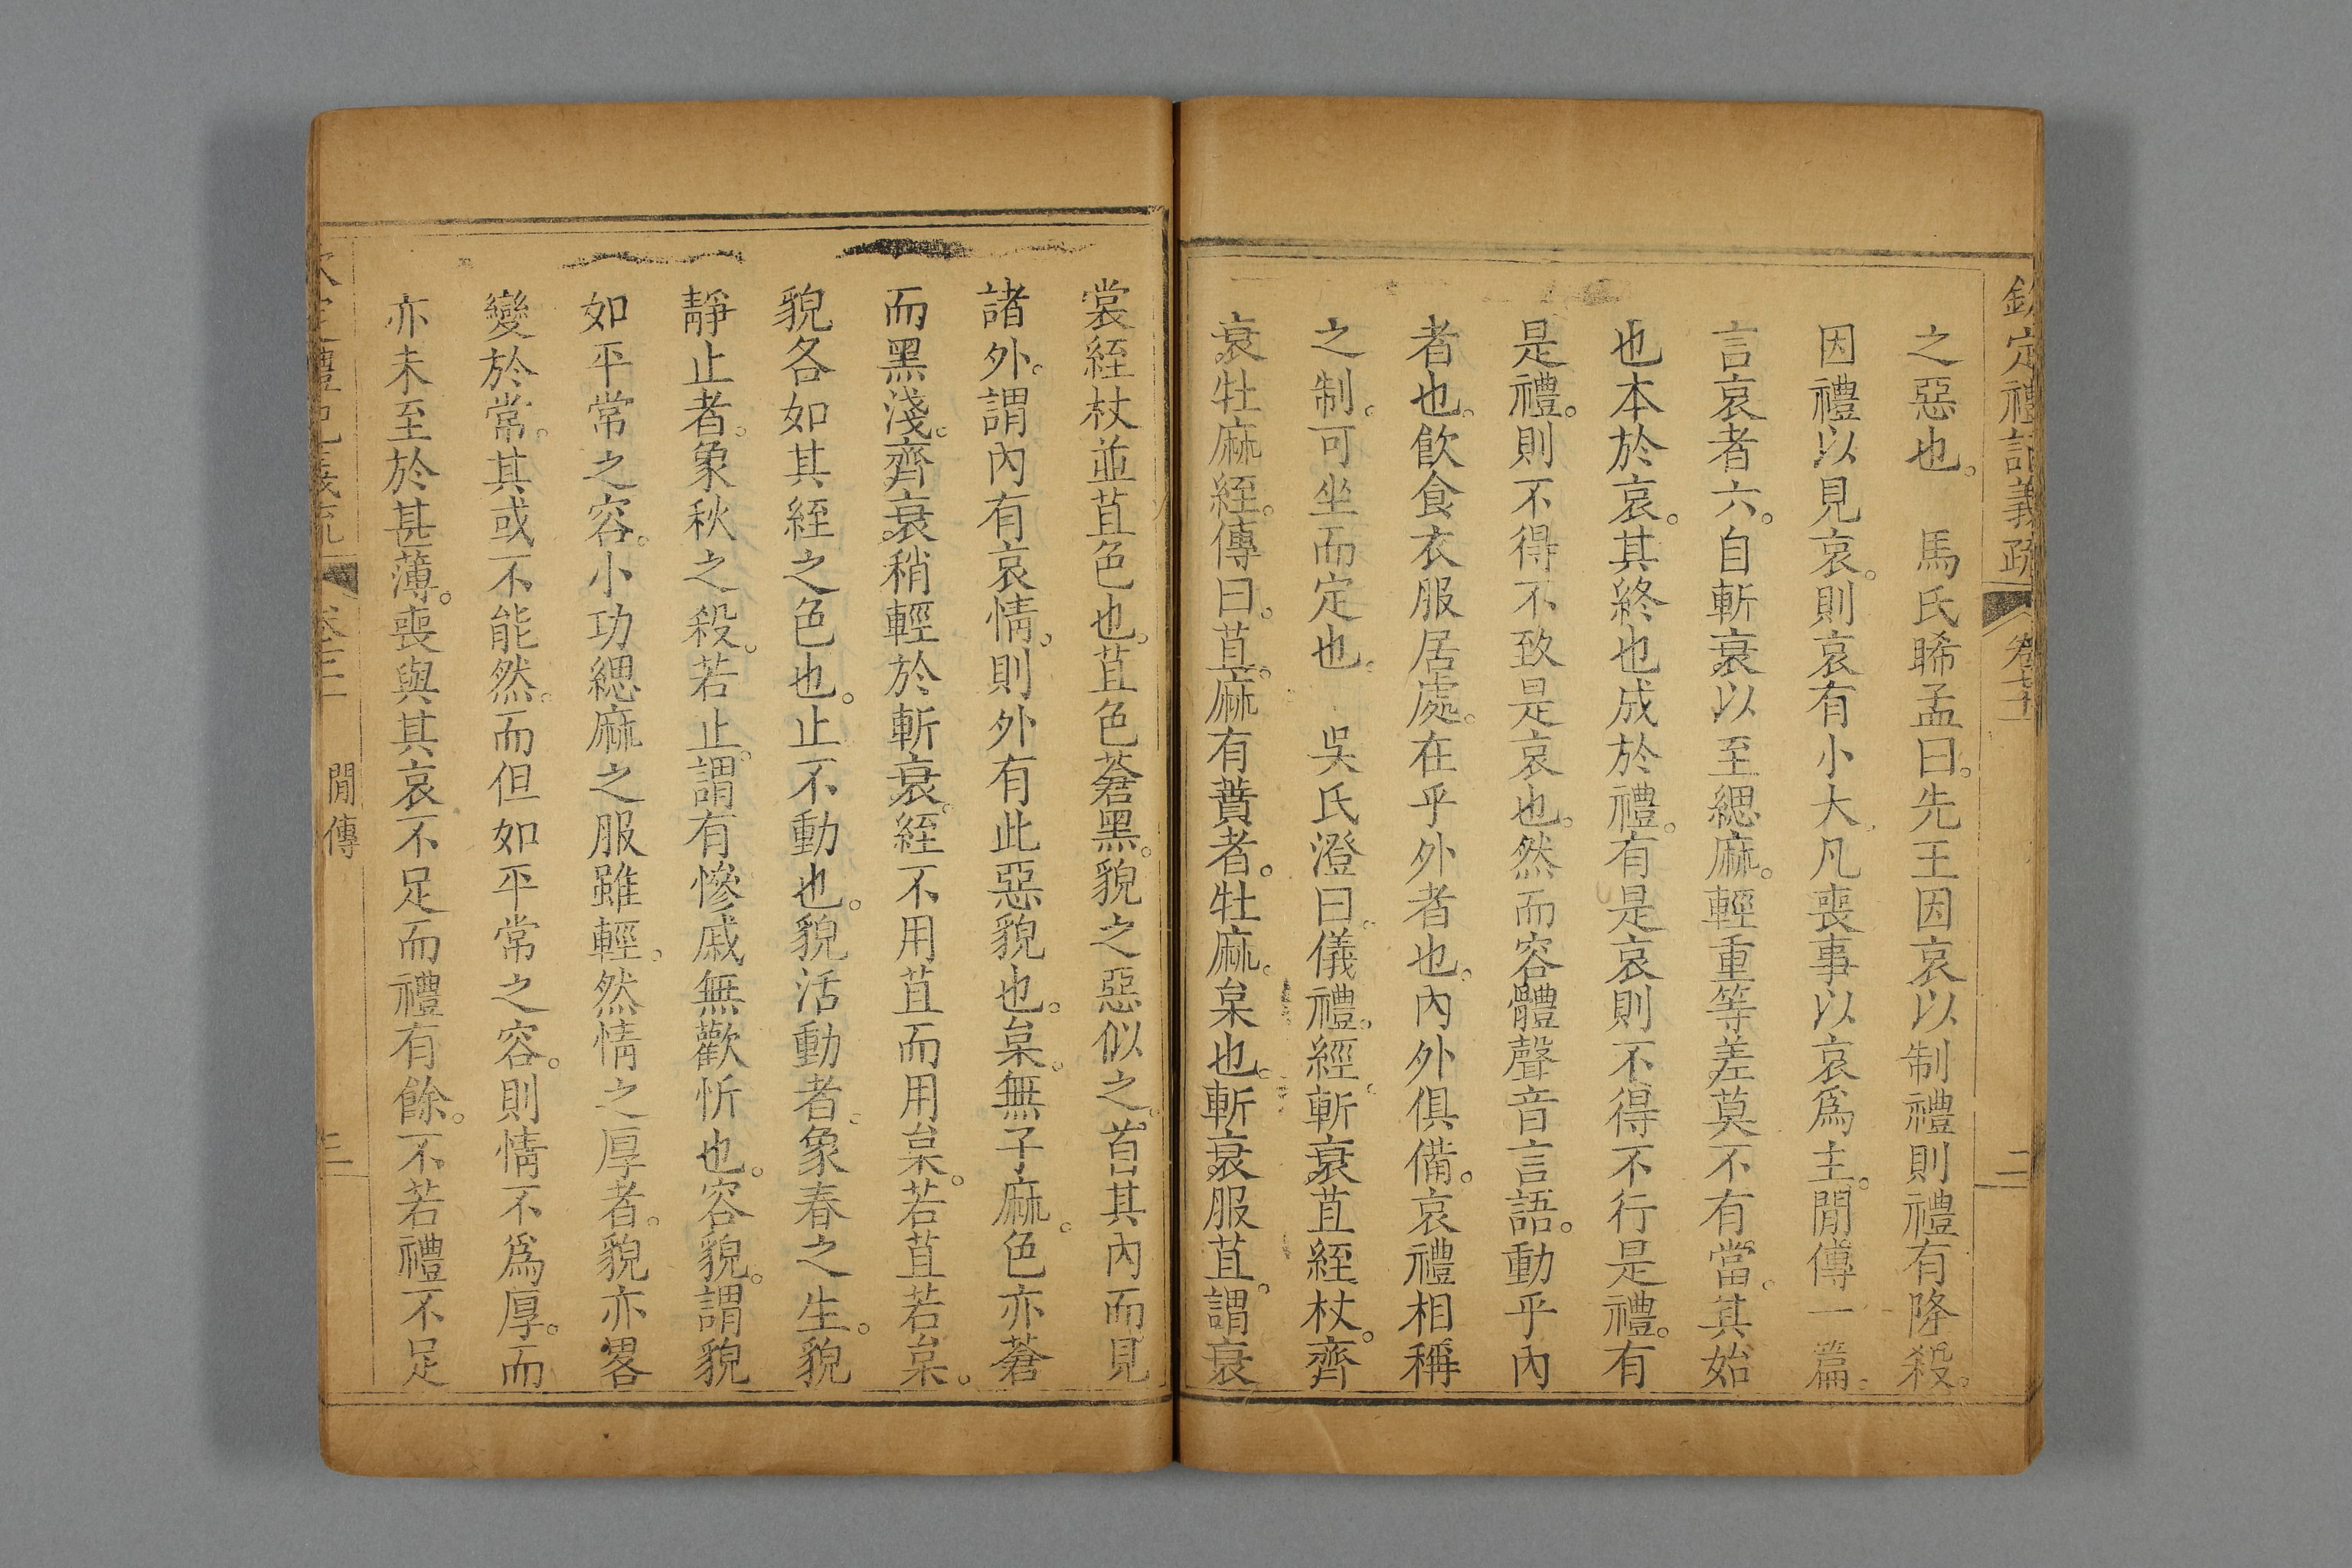 欽定禮記義疏 卷七十二 二
之惡也。 馬氏晞孟曰。先王因哀以制禮則禮有降殺。
因禮以見哀。則哀有小大。凡喪事以哀爲主。閒傳一篇。
言哀者六。自斬衰以至緦麻。輕重等差莫不有當。其始
也本於哀。其終也成於禮。有是哀則不得不行是禮。有
是禮。則不得不致是哀也。然而容體聲音言語。動乎內
者也。飲食衣服居處。在乎外者也。內外俱備。哀禮相稱
之制。可坐而定也。 吳氏澄曰。儀禮。經斬衰苴絰杖。齊
衰牡麻絰。傳曰。苴。麻有蕡者。牡麻。枲也。斬衰服苴。謂衰
裳絰杖並苴色也。苴色蒼黑。貌之惡似之。首其內而見
諸外。謂內有哀情。則外有此惡貌也。枲。無子麻。色亦蒼
而黑淺。齊衰稍輕於斬衰。絰不用苴而用枲。若苴若枲。
貌各如其絰之色也。止不動也。貌活動者。象春之生。貌
靜止者。象秋之殺。若止。謂有慘戚無歡忻也。容貌。謂貌
如平常之容。小功緦麻之服雖輕。然情之厚者。貌亦畧
變於常。其或不能然。而但如平常之容。則情不爲厚。而
亦未至於甚薄。喪與其哀不足而禮有餘。不若禮不足
閒傳